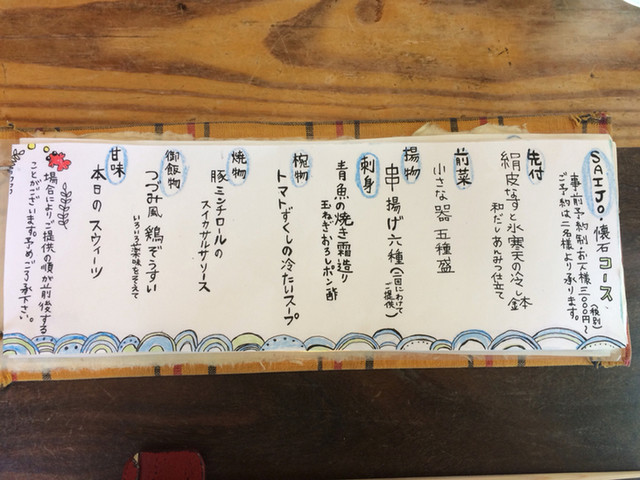 SAIJO 懐石コース
(税別)
事前予約制・お一人様三〇〇〇円〜
ご予約は二名様より承ります。
先付
絹皮なすと水寒天の冷し鉢
和だしあんみつ仕立て
前菜
小さな器 五種盛
揚物
串揚げ六種(二回にわけてご提供)
刺身
青魚の焼き霜造り
玉ねぎおろしポン酢
椀物
トマトずくしの冷たいスープ
焼物
豚ミンチロールの
スイカサルサソース
御飯物
つづみ風 鶏ぞうすい
いろいろ薬味をそえて
甘味
本日のスウィーツ
場合によりご提供の順が前後する
ことがございます。予めご了承下さい。